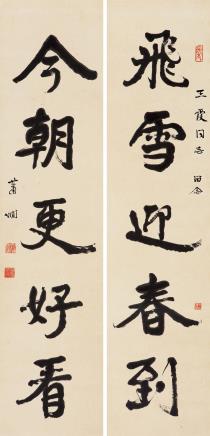 飛雪迎春到
王霞同志留念
今朝更好看
蕭嫻